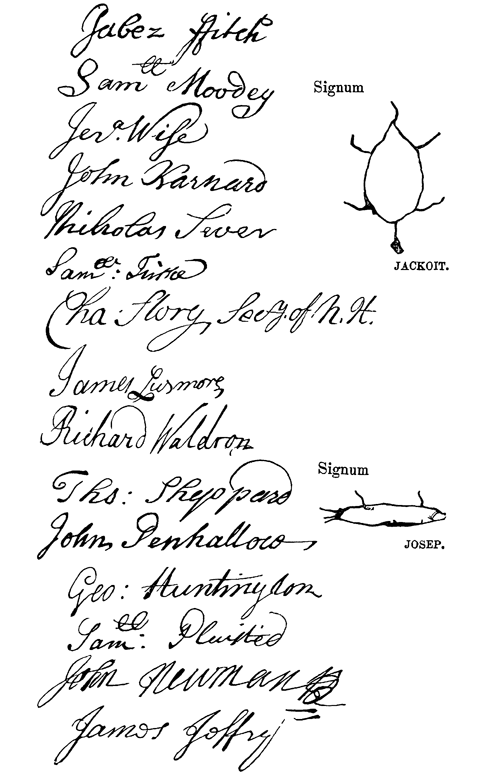 Jabez ffitch
Samll Moodey
Jera. Wise
John Barnard
Nicholas Sever
Samll: Tinke
Cha: Story, Secy. of. N. H.
James Lusmore
Richard Waldron
Ths: Sheppard
John Penhallow
Geo: Huntingdon
Samll: Plaisted
John Newman
James Joffry
Signum
JACKOIT.
Signum
JOSEP.